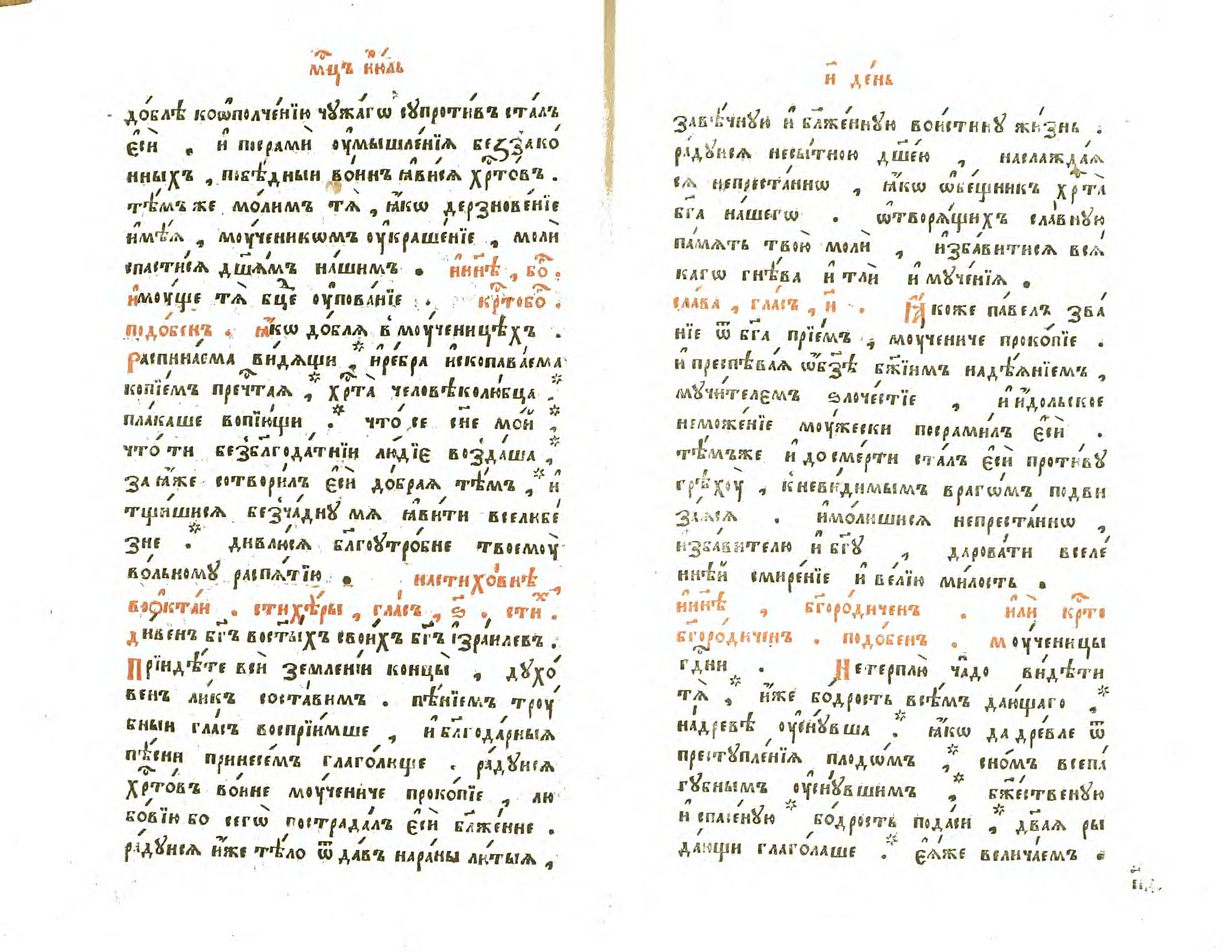 мц҃ъ і҆ю́ль
до́блѣ коѡ҆полче́нїю чу́жагѡ сꙋпроти́въ ста́лъ
є҆сѝ , и҆ посрамѝ оу҆мышле́нїѧ беззако́
нныхъ , побѣ́дныи во́инъ ꙗ҆ви́сѧ хрⷭ҇то́въ .
тѣ́мъ же мо́лимъ тѧ̀ , ꙗ҆́кѡ дерзнове́нїе
и҆мѣ́ѧ , моу́ченикѡмъ оу҆краше́нїе , молѝ
спасти́сѧ дш҃а́мъ на́шимъ . нн҃ѣ , бо҃ .
и҆моу́ще тѧ̀ бц҃е оу҆пова́нїе . крⷭ҇тобо҃ .
подо́бенъ . ꙗ҆́кѡ до́блѧ в моу́ченицѣхъ .
Распина́ема ви́дѧщи , и҆ре́бра и҆скопава́ема
копїе́мъ пречⷭ҇таѧ , * хрⷭ҇та̀ человѣколю́бца . *
пла́каше вопїю́щи . * что́ се сн҃е мо́и , *
что́ ти безблагода́тнїи лю́дїе возда́ша , *
за ꙗ҆́же сотвори́лъ є҆сѝ до́браѧ тѣ́мъ , * и҆
тщи́шисѧ безча́днꙋ мѧ̀ ꙗ҆ви́ти вселюбе́
зне . * дивлю́сѧ бл҃гоутро́бне твоемоу̀
во́льномꙋ распѧ́тїю . настихо́внѣ
воѻ҆кта́и . стихѣ́ры , гла́съ , ѕ҃ . сти́х .
ди́венъ бг҃ъ восты́хъ свои́хъ бг҃ъ і҆зра́илевъ .
Прїидѣ́те вси̑ земле́нїи концы̀ , дꙋхо́
венъ ли́къ соста́вимъ . пѣ́нїемъ троу́
бныи гла́съ воспрїи́мше , и҆ бл҃года́рныѧ
пѣ́сни принесе́мъ глаго́люще . ра́дꙋисѧ
хрⷭ҇то́въ во́ине моу́чениче проко́пїе , лю
бо́вїю бо сегѡ̀ пострада́лъ є҆сѝ бл҃же́нне .
ра́дꙋисѧ и҆́же тѣ́ло ѿ да́въ нара́ны лю́тыѧ ,
и҃ де́нь
завѣ́чнꙋю и҆ бл҃же́ннꙋю вои́стинꙋ жи́знь .
ра́дꙋисѧ несы́тною дш҃е́ю , наслажда́ѧ
сѧ непреста́ннѡ , ꙗ҆́кѡ ѻ҆бе́щникъ хрⷭ҇та̀
бг҃а на́шегѡ . ѿтворѧ́щихъ сла́внꙋю
па́мѧть твою̀ молѝ , и҆зба́витисѧ всѧ́
кагѡ гнѣ́ва и҆ тлѝ и҆ мꙋче́нїѧ .
сла́ва , гла́съ , и҃ . Ꙗ҆́коже па́велъ зва́
нїе ѿ бг҃а прїе́мъ , моу́чениче проко́пїе .
и҆ преспѣва́ѧ ѡ҆бз҃ѣ бж҃їимъ надѣ́ѧнїемъ ,
мꙋчи́телемъ ѕлоче́стїе , и҆ и҆́дольское
неможе́нїе моу́жески посрами́лъ є҆сѝ .
тѣ́мъже и҆ до сме́рти ста́лъ є҆сѝ проти́вꙋ
грѣхоу̀ , к неви́димымъ врагѡ́мъ подви
за́ѧсѧ . и҆мо́лишисѧ непреста́ннѡ ,
и҆зба́вителю и҆ бг҃ꙋ , дарова́ти вселе́
ннѣи смире́нїе и҆ ве́лїю ми́лость .
нн҃ѣ , бг҃оро́диченъ . и҆лѝ крⷭ҇то
бг҃оро́диченъ . подо́бенъ . моу́ченицы
гдⷭ҇ни . Нетерплю̀ ча́до ви́дѣти
тѧ̀ , * и҆́же бо́дрость всѣ́мъ даю́щаго , *
на́древѣ оу҆сну́вша . * ꙗ҆́кѡ да дре́вле ѿ
престꙋпле́нїѧ плодѡ́мъ , * сно́мъ всепа́
гꙋбнымъ оу҆сну́вшимъ , * бж҃е́ственꙋю
и҆ спасе́нꙋю * бо́дрость пода́си , * дв҃аѧ ры
да́ющи глаго́лаше . * є҆ѧ́же велича́емъ .